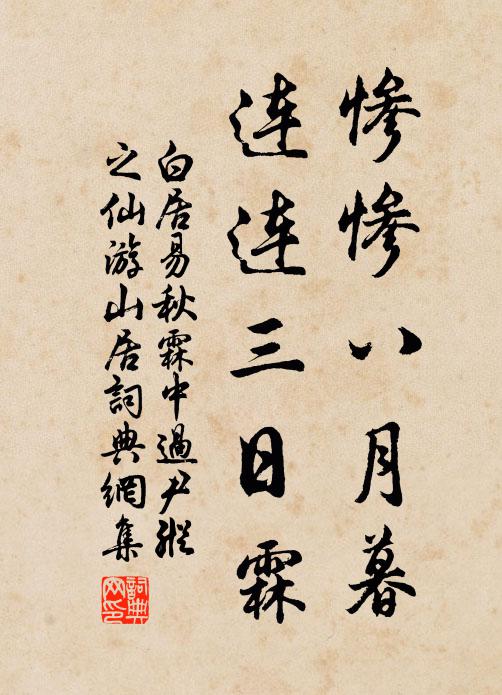 惨惨八月暮
连连三日霖
白居易秋霖中過尹縱
之仙游山居詞典網集
詞典
网印